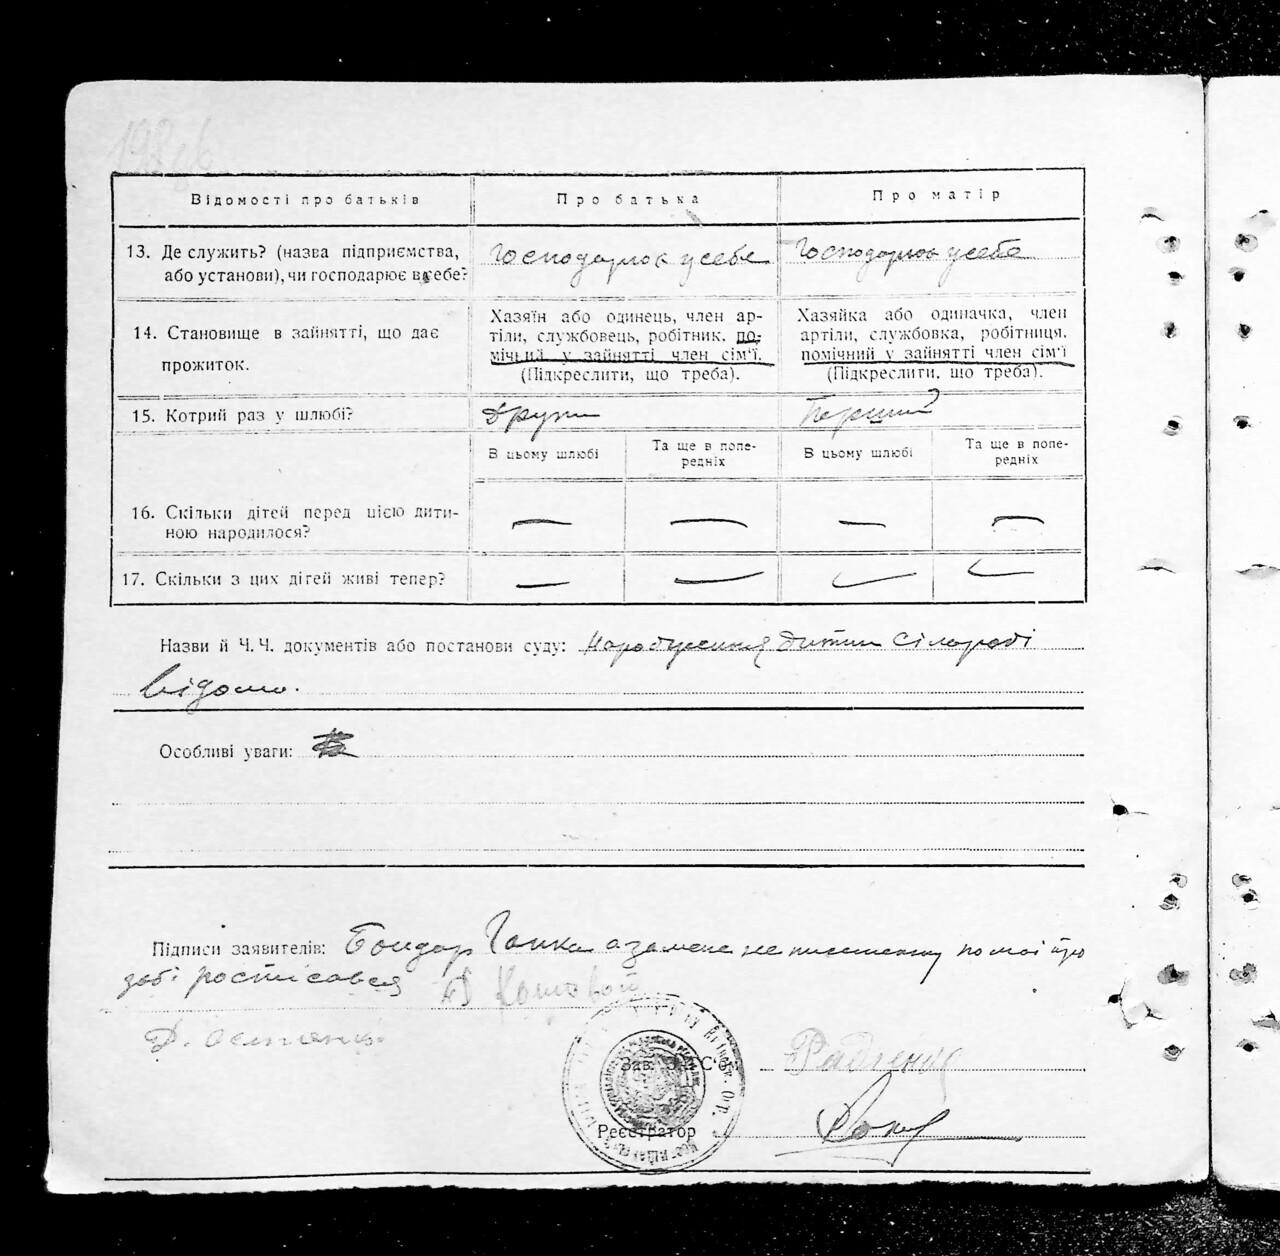 Відомості про батьків
Про батька
Про матір
13. Де служить? (назва підприємства,
або установи), чи господарює в себе?
Господарює у себе
Господарює у себе
14. Становище в зайнятті, що дає
прожиток.
Хазяїн або одинець, член ар-
тіли, службовець, робітник, по-
мічний у зайнятті член сім'ї.
(Підкреслити, що треба).
Хазяйка або одиначка, член
артіли, службовка, робітниця,
помічний у зайнятті член сім'ї
(Підкреслити, що треба).
15. Котрий раз у шлюбі?
Другий
Перший
В цьому шлюбі
Та ще в попе-
редніх
В цьому шлюбі
Та ще в попе-
редніх
16. Скільки дітей перед цією дити-
ною народилося?
— — — —
17. Скільки з цих дітей живі тепер?
— — — —
Назви й Ч.Ч. документів або постанови суду: дитини сілораді
відомо.
Особливі уваги:
Підписи заявителів: Бондар Ганка а за мене неписьменну по моі про
зьбі росписався
Зав. С
Реєстратор